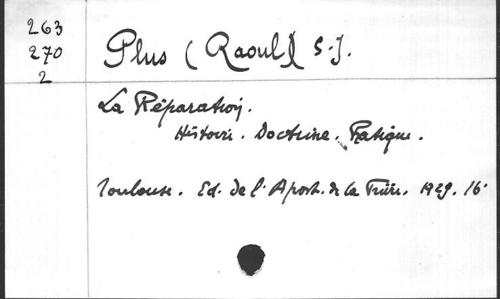 263
270
2
Plus (Raoul) S.J.
La Réparation.
Histoire. Doctrine. Pratique.
Toulouse. Ed. de l'Apost. de la Prière. 1929. 16°